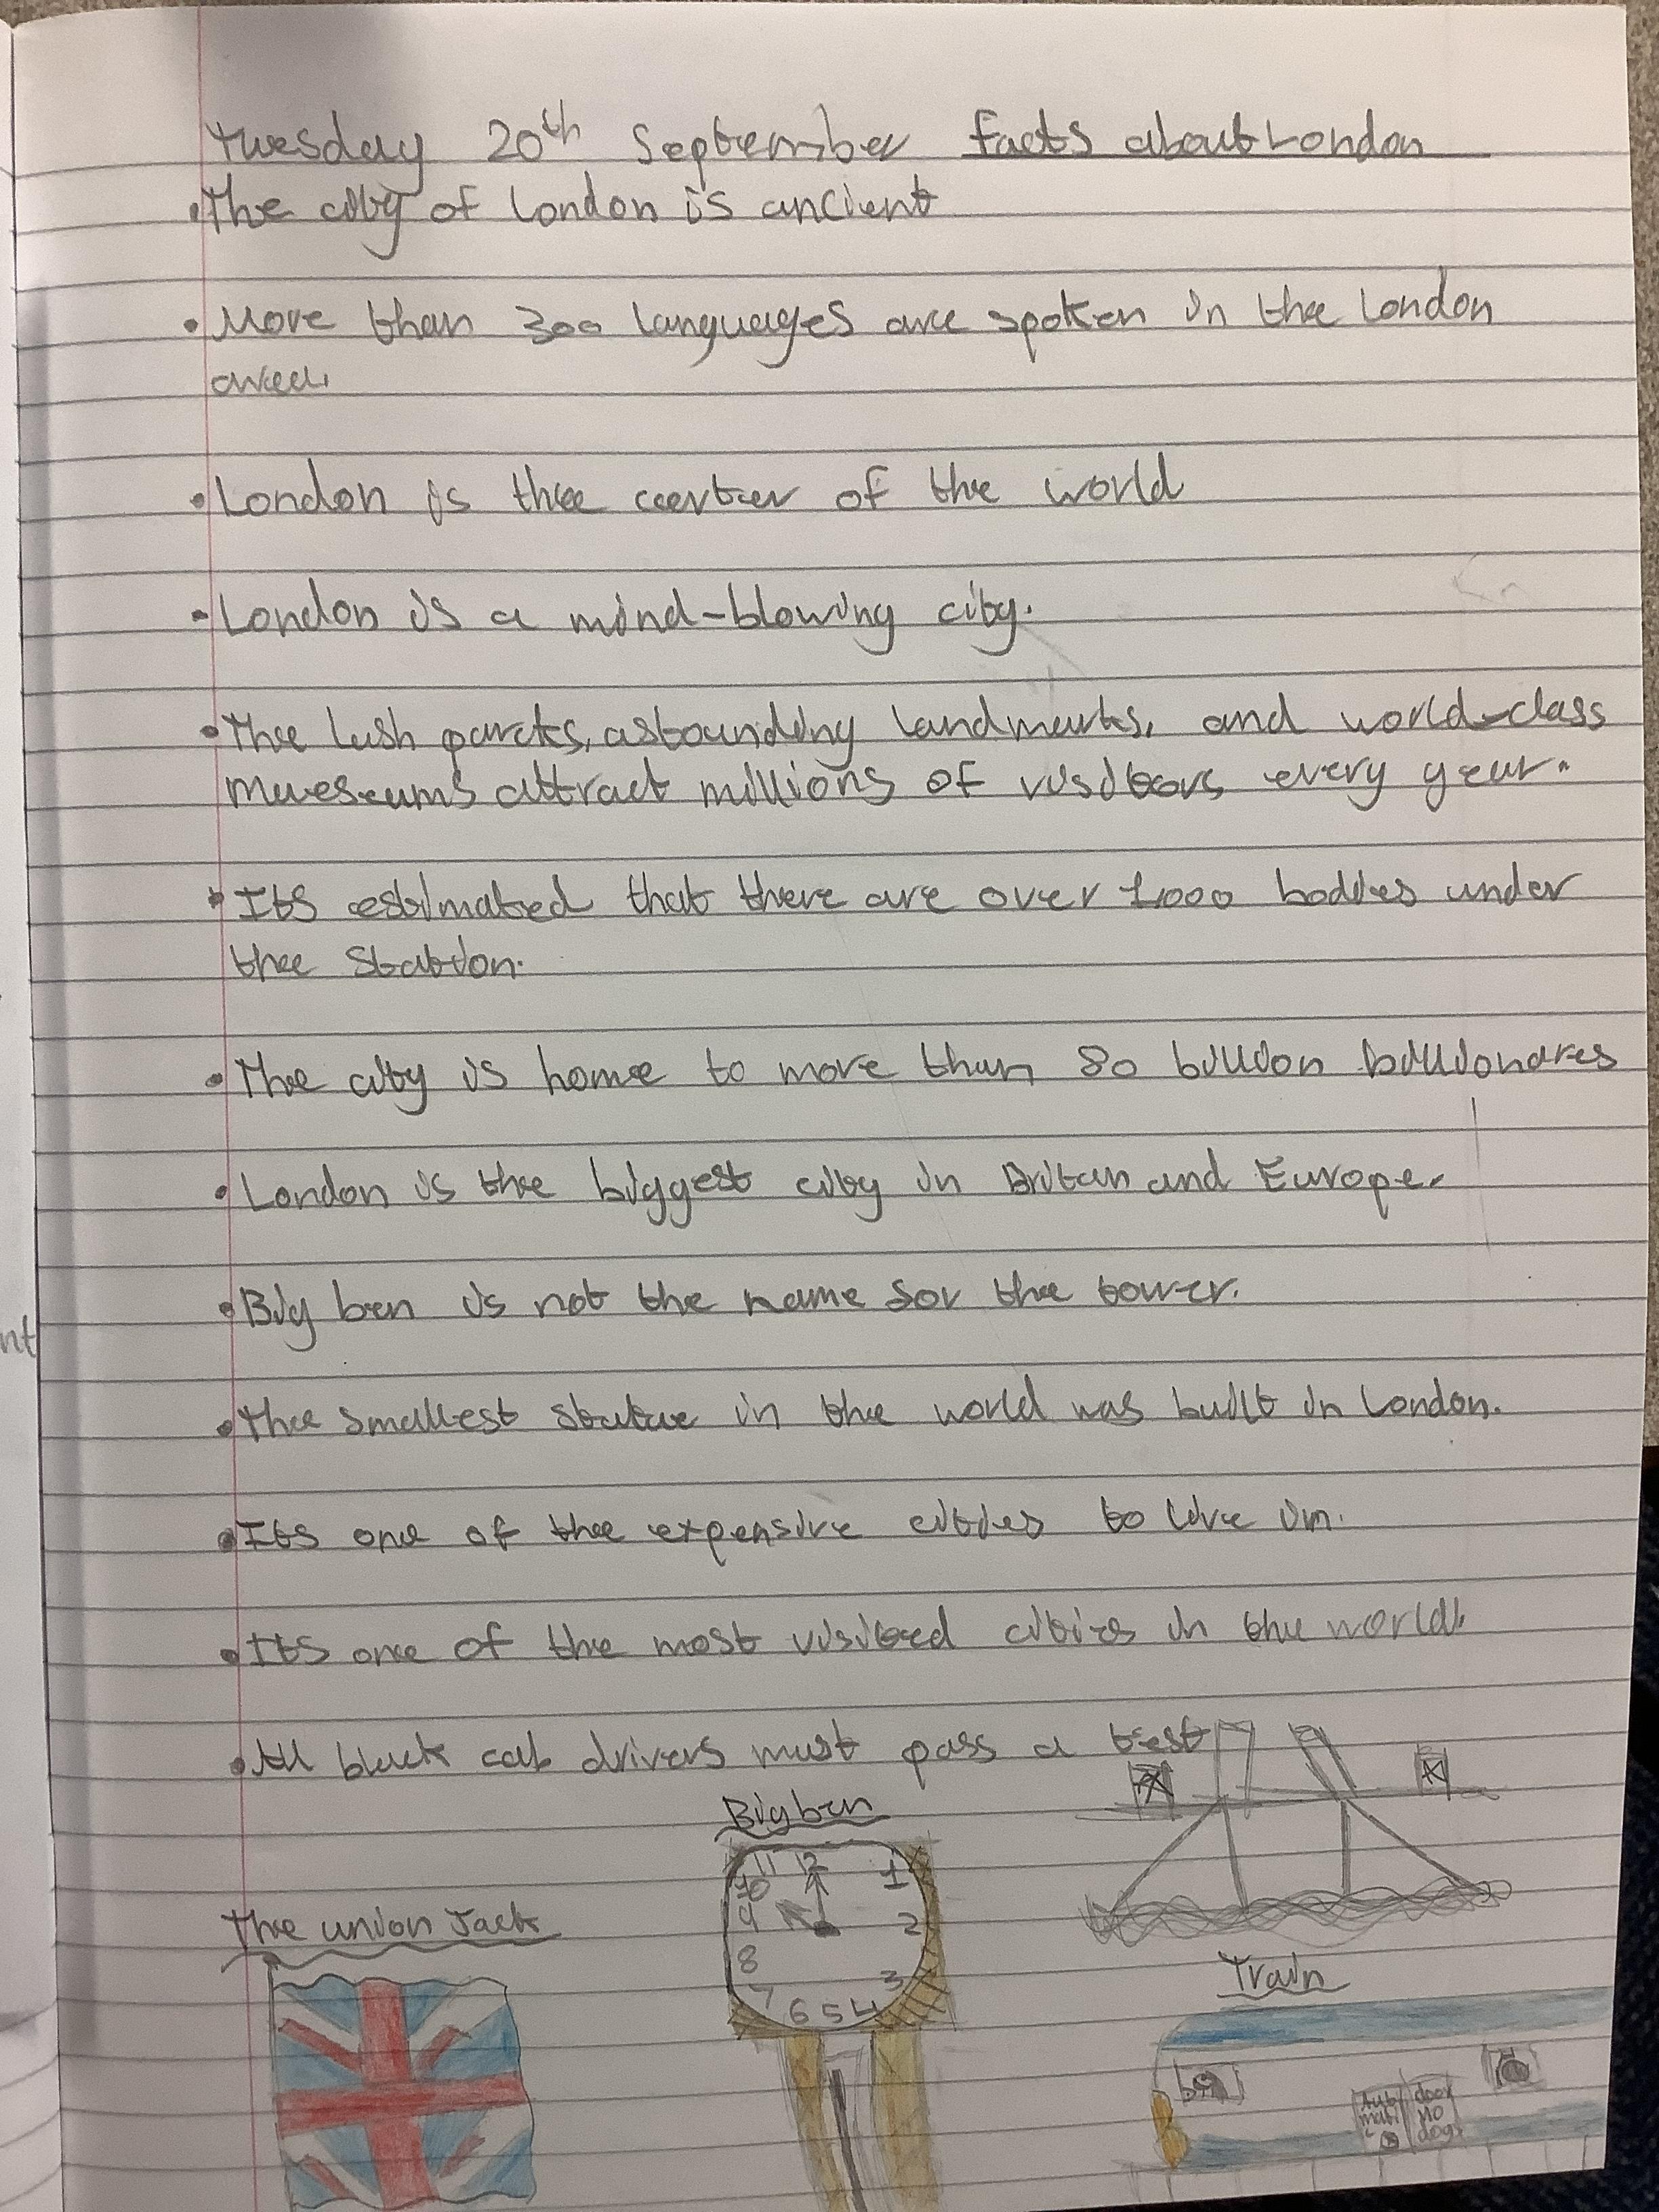 Tuesday 20th September facts about London
• The city of London is ancient
• More than 300 languages are spoken in the London
area.
• London is the center of the world
• London is a mind-blowing city.
• The lush parcks, astounding landmarks, and world-class
mueseums attract millions of visitors every year.
• Its estimated that there are over 1,000 boddies under
the station.
• The city is home to more than 80 billion billionares
• London is the biggest city in Britan and Europe.
• Big ben is not the name for the tower.
• The smallest statue in the world was built in London.
• Its one of the expensive citties to live in.
• Its one of the most visited cities in the world.
• All black cab drivers must pass a test
Big ben
11 12 1
10
9 2
8
3
7 6 5 4
The union Jack
Train
door
NO
dogs
nt